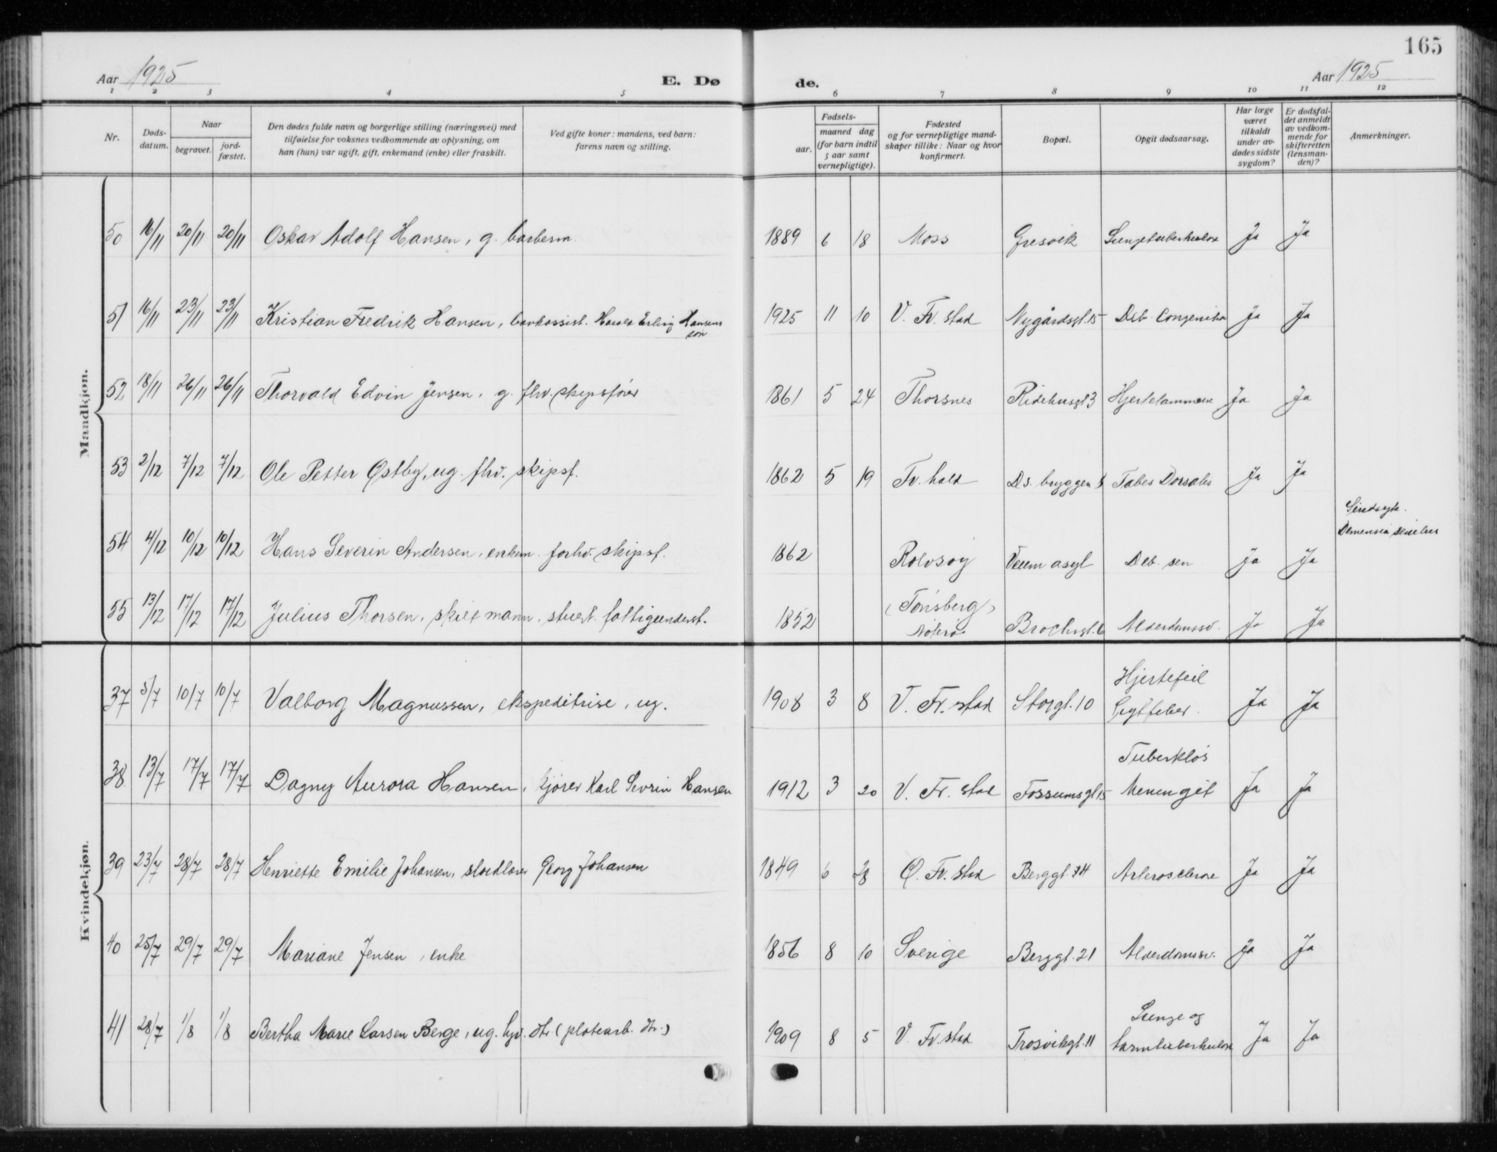 165
Aar 1925
E. Dø
de.
Aar 1925
1 2 3 4 5 6 7 8 9 10 11 12
Nr.
Døds-
datum.
Naar
begravet.
jord-
fæstet.
Den dødes fulde navn og borgerlige stilling (næringsvei) med
tilføielse for voksnes vedkommende av oplysning, om
han (hun) var ugift, gift, enkemand (enke) eller fraskilt.
Ved gifte koner: mandens, ved barn:
farens navn og stilling.
Fødsels-
aar.
maaned dag
(for barn indtil
5 aar samt
vernepligtige).
Fødested
og for vernepligtige mand-
skaper tillike: Naar og hvor
konfirmert.
Bopæl.
Opgit dødsaarsag.
Har læge
været
tilkaldt
under av-
dødes sidste
sygdom?
Er dødsfal-
det anmeldt
av vedkom-
mende for
skifteretten
(lensman-
den)?
Anmerkninger.
Mandkjøn.
50 16/11 20/11 20/11 Oskar Adolf Hansen, g. barberm. 1889 6 18 Moss Gresvik Lungetuberkulose Ja Ja
51 16/11 23/11 23/11 Kristian Fredrik Hansen, bankassist. Erling Hansens 1925 11 10 V. Fr.stad Nygårdsgt. 15 Deb. Congenita Ja Ja
søn
52 18/11 26/11 26/11 Thorvald Edvin Jensen, g. fhv. skipsfører 1861 5 24 Thorsnes Ridehusgt 3 Hjertelammelse Ja Ja
53 2/12 7/12 7/12 Ole Petter Østby, ug. fhv. skipsf. 1862 5 19 Fr.hald D.s. bryggen 8 Tabes Dorsalis Ja Ja
Sindssyk.
Dementia senilis
54 4/12 10/12 10/12 Hans Severin Andersen, enkem. forhv. skipsf. 1862 Rolvsøy Veum asyl Deb. sen Ja Ja
55 13/12 17/12 17/12 Julius Thorsen, skilt mann, stuert. fattigunderst. 1852 (Tønsberg) Brochsgt. 6 Alderdomssv. Ja Ja
Nøterø
Kvindekjøn.
37 5/7 10/7 10/7 Valborg Magnussen, ekspeditrise, ug. 1908 3 8 V. Fr.stad Storgt. 10 Hjertefeil Ja Ja
Gigtfeber.
38 13/7 17/7 17/7 Dagny Aurora Hansen, kjører Karl Sevrin Hansen 1912 3 20 V. Fr.stad Fossumsgt 15 Tuberkløs Ja Ja
Menengit
39 23/7 28/7 28/7 Henriette Emilie Johansen, Georg Johansen 1849 6 28 Ø. Fr.stad Berggt. 34 Arterosclerose Ja Ja
40 25/7 29/7 29/7 Mariane Jensen, enke 1856 8 10 Sverige Berggt. 21 Alderdomssv. Ja Ja
41 28/7 1/8 1/8 Bertha Marie Larsen Berge, ug. hjv. dtr. (platearb. dtr.) 1909 8 5 V. Fr.stad Trosvikgt. 11 Lunge og Ja Ja
tarmtuberkulose